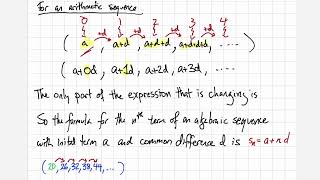 For an arithmetic sequence
0 1 2 3 4
+d +d +d +d
( a , a+d , a+d+d , a+d+d+d , .... )
( a+0d , a+1d , a+2d , a+3d , .... )
The only part of the expression that is changing is
So the formula for the nth term of an algebraic sequence
with initial term a and common difference d is Sn = a+nd
( 20, 26, 32, 38, 44, ... )